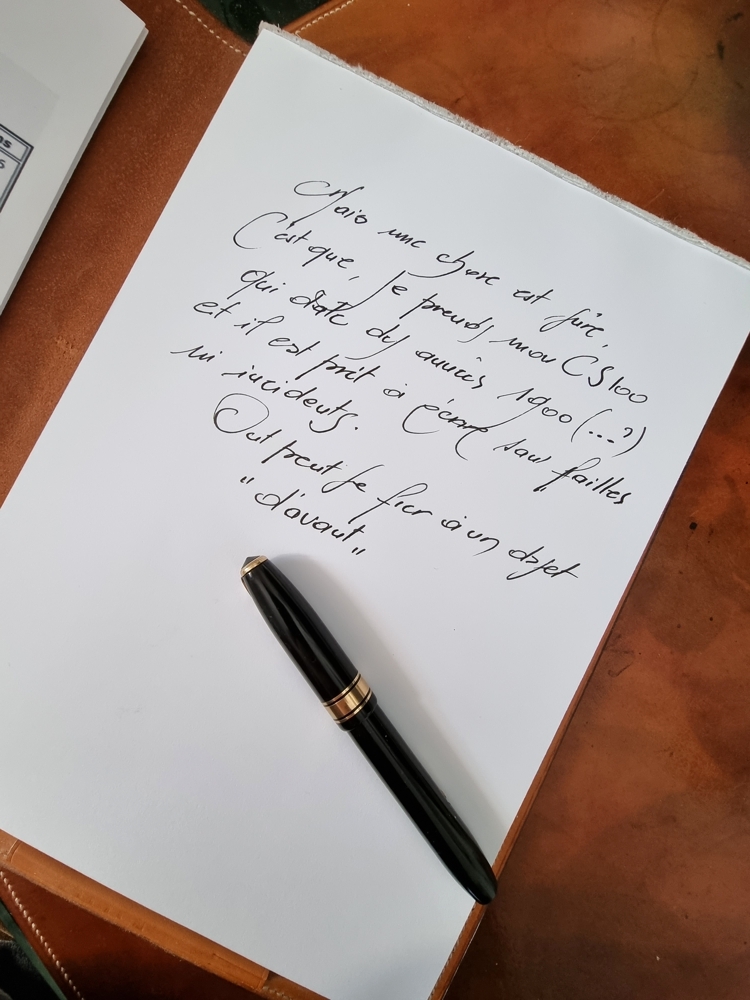 Mais une chose est sûre,
C'est que, je prends mon CS100
qui date des années 1900 (...?)
et il est prêt à écrire sans failles
ni incidents.
On peut se fier à un objet
"d'avant"